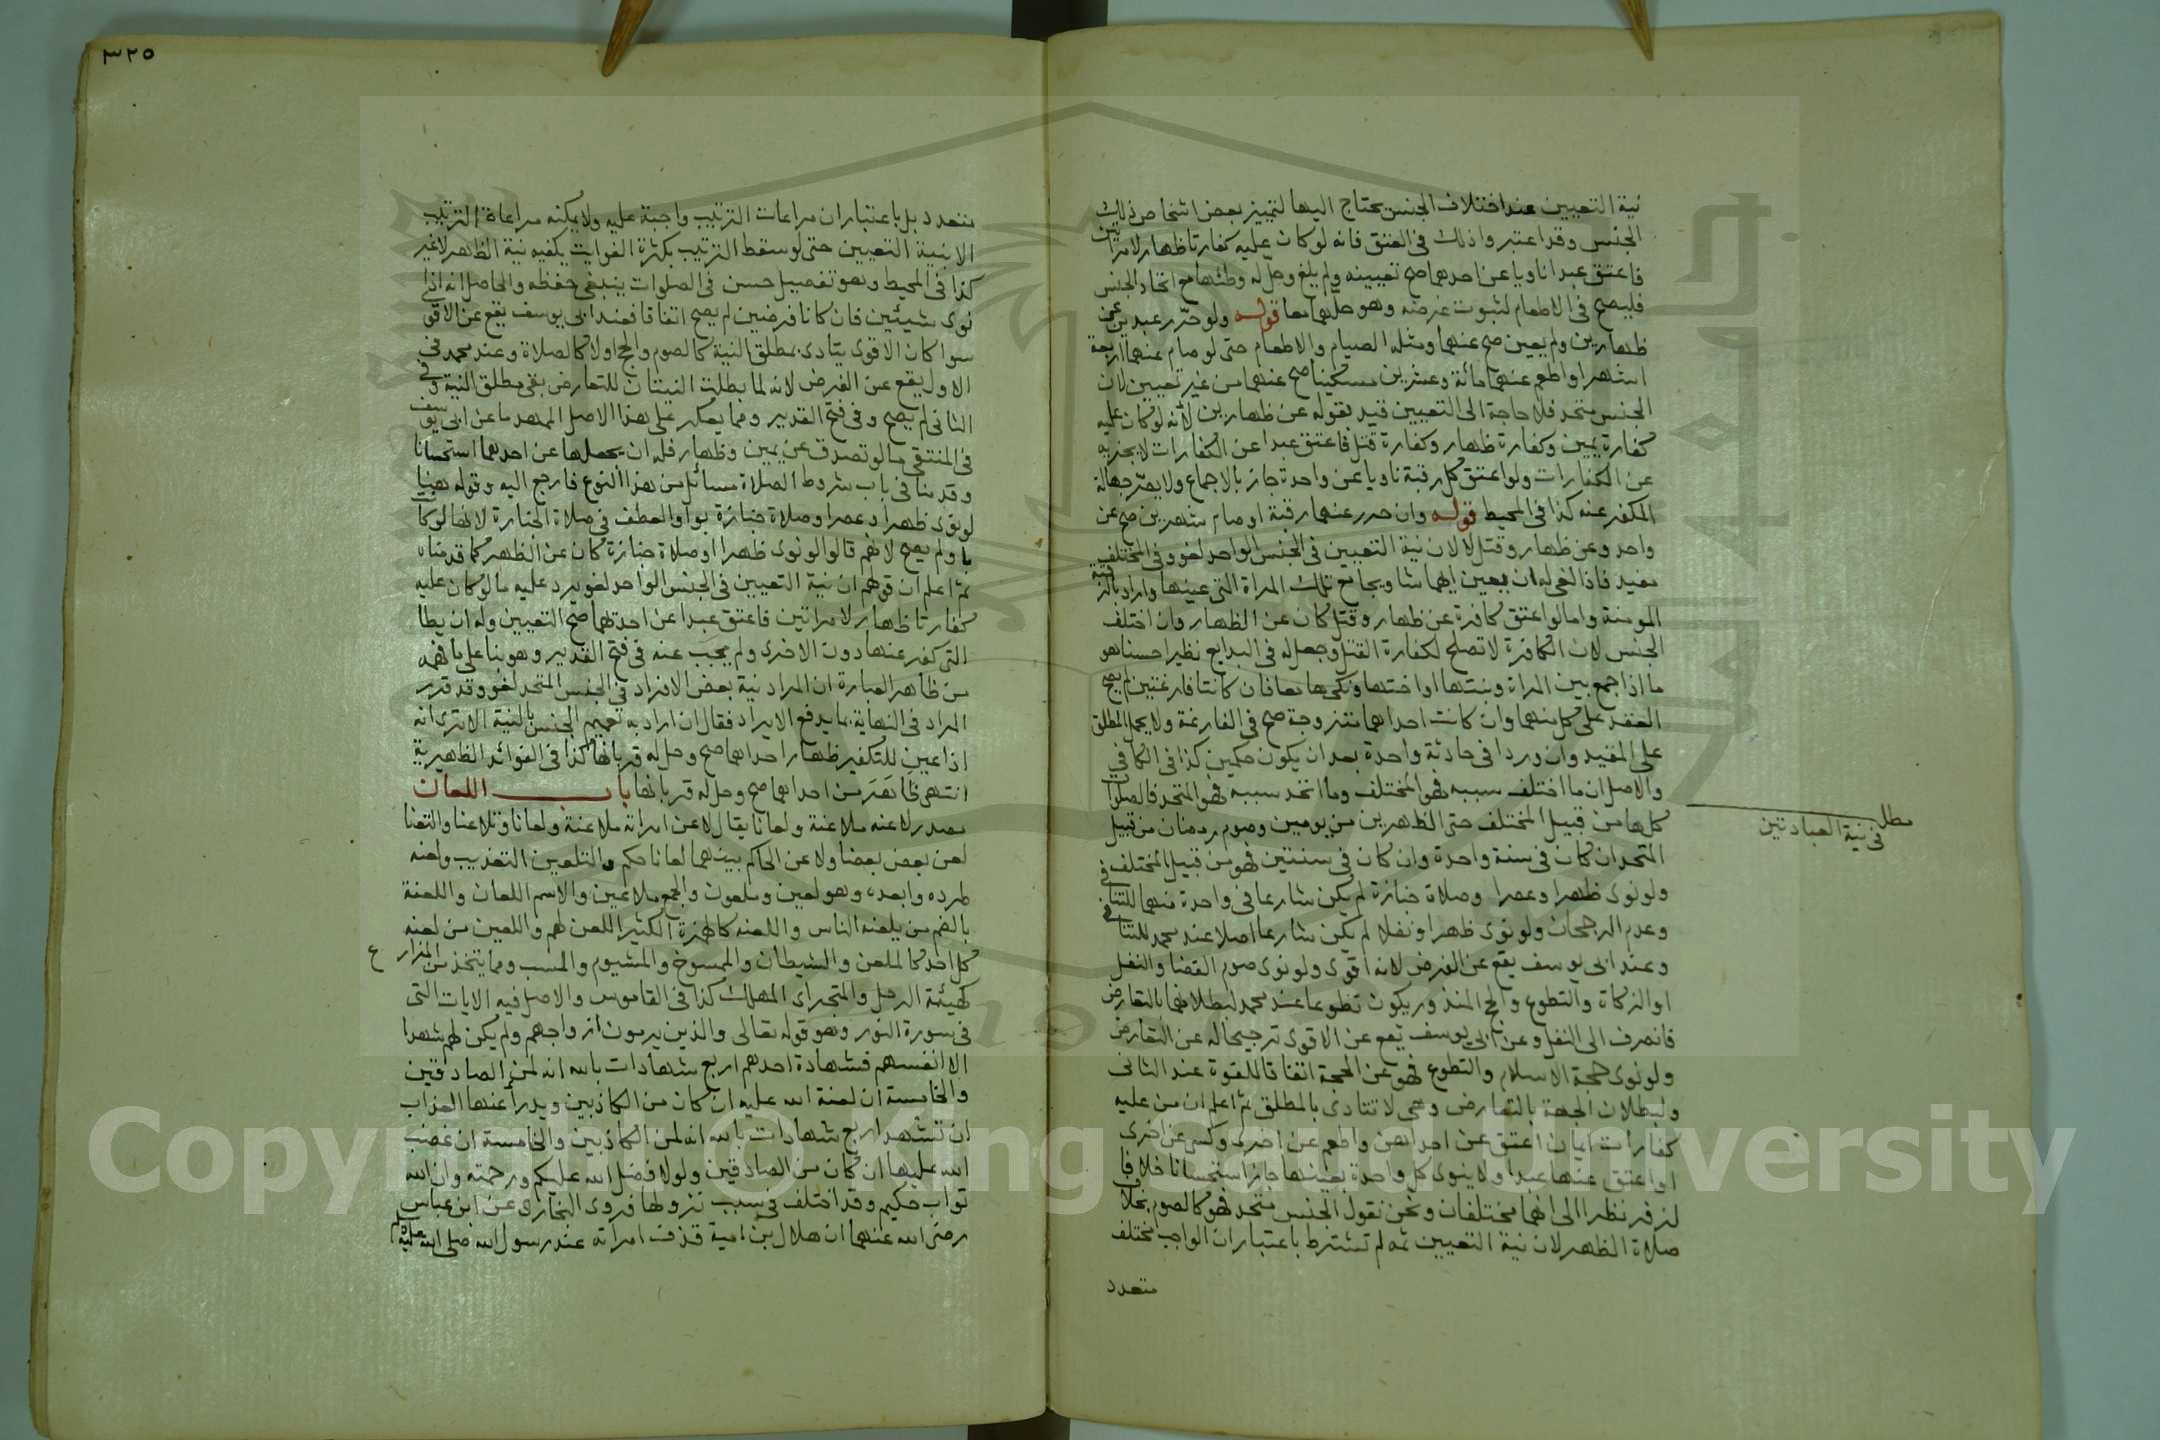 نية التعيين عند اختلاف الجنس يحتاج اليها لتمييز بعض اشخاص ذلك
الجنس وقد اعتبروا ذلك فى العتق فانه لو كان عليه كفارتا ظهار لامراتين
فاعتق عبدا ناويا عن احدهما صح تعيينه ولم يلغ وحل له وطئها مع اتحاد الجنس
فليصح فى الاطعام لثبوت غرضه وهو حلهما معا قوله ولو حرر عبدين عن
ظهارين ولم يعين صح عنهما ومثله الصيام والاطعام حتى لو صام عنهما اربعة
اشهر او اطعم عنهما مائة وعشرين مسكينا صح عنهما من غير تعيين لان
الجنس متحد فلا حاجة الى التعيين قيد بقوله عن ظهارين لانه لو كان عليه
كفارة يمين وكفارة ظهار وكفارة قتل فاعتق عبدا عن الكفارات لا يجزيه
عن الكفارات ولو اعتق كل رقبة ناويا عن واحدة جاز بالاجماع ولا يضر جهالة
المكفر عنه كذا فى المحيط قوله وان حرر عنهما رقبة او صام شهرين صح عن
واحد وعن ظهار وقتل لا لان نية التعيين فى الجنس الواحد لغو وفى المختلف
مفيد فاذا لغى له ان يعين ايهما شا ويجامع تلك المراة التى عينها واراد بالرقبة
المومنة واما لو اعتق كافرة عن ظهار وقتل كان عن الظهار وان اختلف
الجنس لان الكافرة لا تصلح لكفارة القتل وجعل له فى البدايع نظيرا حسنا هو
ما اذا جمع بين المراة وبنتها او اختها ونكحها معا فان كانتا فارغتين لم يصح
العقد على كل منهما وان كانت احداهما متزوجة صح فى الفارغة ولا يحمل المطلق
على المقيد وان وردا فى حادثة واحدة بعد ان يكون حكمين كذا فى الكافي
والاصل ان ما اختلف سببه فهو المختلف وما اتحد سببه فهو المتحد فالصلوات
كلها من قبيل المختلف حتى الظهرين من يومين وصوم رمضان من قبيل
المتحد ان كان فى سنة واحدة وان كان فى سنتين فهو من قبيل المختلف
ولو نوى ظهرا وعصرا وصلاة جنازة لم يكن شارعا فى واحدة منهما للتنافى
وعدم الرجحان ولو نوى ظهرا ونفلا لم يكن شارعا اصلا عند محمد للتنافى
وعند ابى يوسف يقع عن الفرض لانه اقوى ولو نوى صوم القضا والنفل
او الزكاة والتطوع والحج المنذور يكون تطوعا عند محمد لبطلانهما بالتعارض
فانصرف الى النفل وعن ابى يوسف يقع عن الاقوى ترجيحا له عن التعارض
ولو نوى حجة الاسلام والتطوع فهو عن الحجة اتفاقا للقوة عند الثانى
ولبطلان الجهة بالتعارض وهى لا تتادى بالمطلق ثم اعلم ان من عليه
كفارات ايمان اعتق عن احداهن واطعم عن اخرى وكسى عن اخرى
او اعتق عنها عبدا ولا ينوى كل واحدة بعينها جاز استحسانا خلافا
لزفر نظرا الى انهما مختلفان ونحن نقول الجنس متحد فهو كالصوم بخلاف
صلاة الظهر لان نية التعيين ثمه لم تشترط باعتبار ان الواجب مختلف
متعدد
مطلب
فى نية العبادتين
٣٢٥
متعدد بل باعتبار ان مراعات الترتيب واجبة عليه ولا يمكنه مراعاة الترتيب
الا بنية التعيين حتى لو سقط الترتيب بكثرة الفوايت يكفيه نية الظهر لا غير
كذا فى المحيط وهو تفصيل حسن فى الصلوات ينبغى حفظه والحاصل انه اذا
نوى شيئين فان كانا فرضين لم يصح اتفاقا فعند ابى يوسف يقع عن الاقوى
سوا كان الاقوى يتادى بمطلق النية كالصوم والحج اولا كالصلاة وعند محمد فى
الاول يقع عن الفرض لانه لما بطلت النيتان للتعارض بقى مطلق النية وفى
الثانى لم يصح وفى فتح القدير ومما يعكر على هذا الاصل الممهد ما عن ابى يوسف
فى المنتقى ما لو تصدق عن يمين وظهار فله ان يجعلها عن احدهما استحسانا
وقدمنا فى باب شروط الصلاة مسائل من هذا النوع فارجع اليه وقوله هنا
لو نوى ظهرا وعصرا وصلاة جنازة بواو العطف فى صلاة الجنازة لانها لو كان
باو لم يصح لانهم قالوا لو نوى ظهرا او صلاة جنازة كان عن الظهر كما قدمناه
ثم اعلم ان قولهم ان نية التعيين فى الجنس الواحد لغو يرد عليه ما لو كان عليه
كفارتا ظهار لامراتين فاعتق عبدا عن احدتهما صح التعيين وله ان يطا
التى كفر عنها دون الاخرى ولم يجب عنه فى فتح القدير وهو بنا على ما فهمه
من ظاهر العبارة ان المراد نية بعض الافراد فى الجنس المتحد لغو وقد قرر
المراد فى النهاية بما يدفع الايراد فقال ان اراد به تعميم الجنس بالنية الا ترى انه
اذا عين للتكفير ظهار احداهما صح وحل له قربانها كذا فى الفوائد الظهيرية
انتهى ظاهر من احداهما صح وحل له قربانها باب اللعان
مصدر لاعنه ملاعنة ولعانا يقال لاعن امراته ملاعنة ولعانا وتلاعنا والتعنا
لعن بعض بعضا ولاعن الحاكم بينهما لعانا حكم والتلعين التعذيب ولعنه
طرده وابعده وهو لعين وملعون والجمع ملاعين والاسم اللعان واللعنة
بالضم من يلعنه الناس واللعنه كالهمزة الكثير اللعن لهم واللعين من لعنه
كل احد كالملعن والشيطان والممسوخ والمشيوم والمسب وما يتخذ من المزارع
كهيئة الرجل والمتجراى المهلك كذا فى القاموس والاصل فيه الايات التى
فى سورة النور وهو قوله تعالى والذين يرمون ازواجهم ولم يكن لهم شهدا
الا انفسهم فشهادة احدهم اربع شهادات بالله انه لمن الصادقين
والخامسة ان لعنة الله عليه ان كان من الكاذبين ويدرأ عنها العذاب
ان تشهد اربع شهادات بالله انه لمن الكاذبين والخامسة ان غضب
الله عليها ان كان من الصادقين ولولا فضل الله عليكم ورحمته وان الله
تواب حكيم وقد اختلف فى سبب نزولها فروى البخارى عن ابن عباس
رضى الله عنهما ان هلال بن امية قذف امراته عند رسول الله صلى الله عليه
Copyright © King Saud University